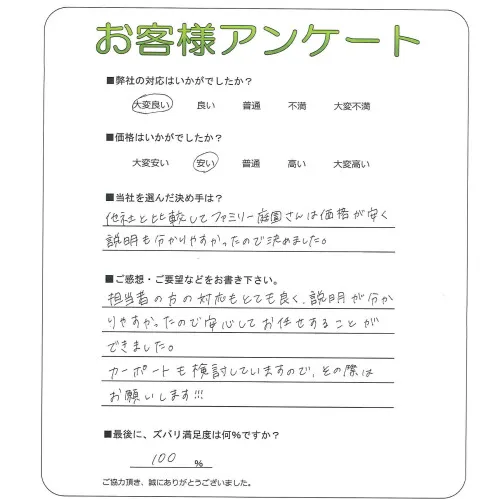 お客様アンケート
■弊社の対応はいかがでしたか?
大変良い 良い 普通 不満 大変不満
■価格はいかがでしたか?
大変安い 安い 普通 高い 大変高い
■当社を選んだ決め手は?
他社と比較してファミリー庭園さんは価格が安く
説明も分かりやすかったので決めました。
■ご感想・ご要望などをお書き下さい。
担当者の方の対応もとても良く、説明が分か
りやすかったので安心してお任せすることが
できました。
カーポートも検討していますので、その際は
お願いします!!!
■最後に、ズバリ満足度は何%ですか?
100 %
ご協力頂き、誠にありがとうございました。